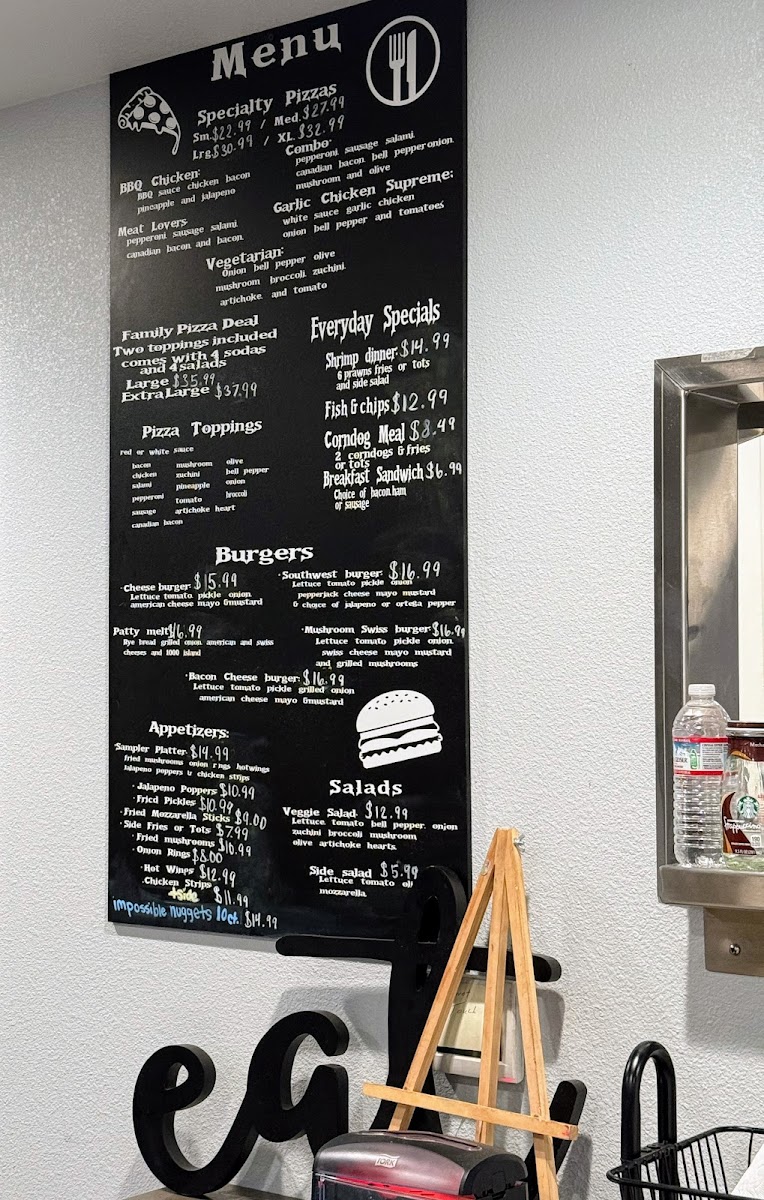 Menu
Specialty Pizzas
Sm.$22.99 / Med.$27.99
Lrg.$30.99 / XL.$32.99
BBQ Chicken:
BBQ sauce chicken bacon
pineapple and jalapeno
Combo:
pepperoni sausage salami
canadian bacon bell pepper onion
mushroom and olive
Meat Lovers
pepperoni sausage salami
canadian bacon and bacon
Garlic Chicken Supreme:
white sauce garlic chicken
onion bell pepper and tomatoes
Vegetarian:
Onion bell pepper olive
mushroom broccoli zuchini
artichoke and tomato
Family Pizza Deal
Two toppings included
comes with 4 sodas
and 4 salads
Large $35.99
Extra Large $37.99
Everyday Specials
Shrimp dinner $14.99
6 prawns fries or tots
and side salad
Fish & chips $12.99
Corndog Meal $8.49
2 corndogs & fries
or tots
Breakfast Sandwich $6.99
Choice of bacon ham
or sausage
Pizza Toppings
red or white sauce
bacon mushroom olive
chicken zuchini bell pepper
salami pineapple onion
pepperoni tomato broccoli
sausage artichoke heart
canadian bacon
Burgers
·Cheese burger $15.99
Lettuce tomato pickle onion
american cheese mayo & mustard
·Southwest burger $16.99
Lettuce tomato pickle onion
pepperjack cheese mayo mustard
& choice of jalapeno or ortega pepper
Patty melt $16.99
Rye bread grilled onion american and swiss
cheeses and 1000 island
·Mushroom Swiss burger $16.99
Lettuce tomato pickle onion
swiss cheese mayo mustard
and grilled mushrooms
·Bacon Cheese burger $16.99
Lettuce tomato pickle grilled onion
american cheese mayo & mustard
Appetizers:
·Sampler Platter $14.99
fried mushrooms onion rings hotwings
Jalapeno poppers & chicken strips
·Jalapeno Poppers $10.99
·Fried Pickles $10.99
·Fried Mozzarella Sticks $9.00
·Side Fries or Tots $7.99
·Fried mushrooms $10.99
·Onion Rings $8.00
·Hot Wings $12.99
·Chicken Strips
+side $11.99
impossible nuggets 10ct. $14.99
Salads
Veggie Salad $12.99
Lettuce tomato bell pepper onion
zuchini broccoli mushroom
olive artichoke hearts
Side salad $5.99
Lettuce tomato
mozzarella
eat
STARBUCKS
Frappuccino
TORK